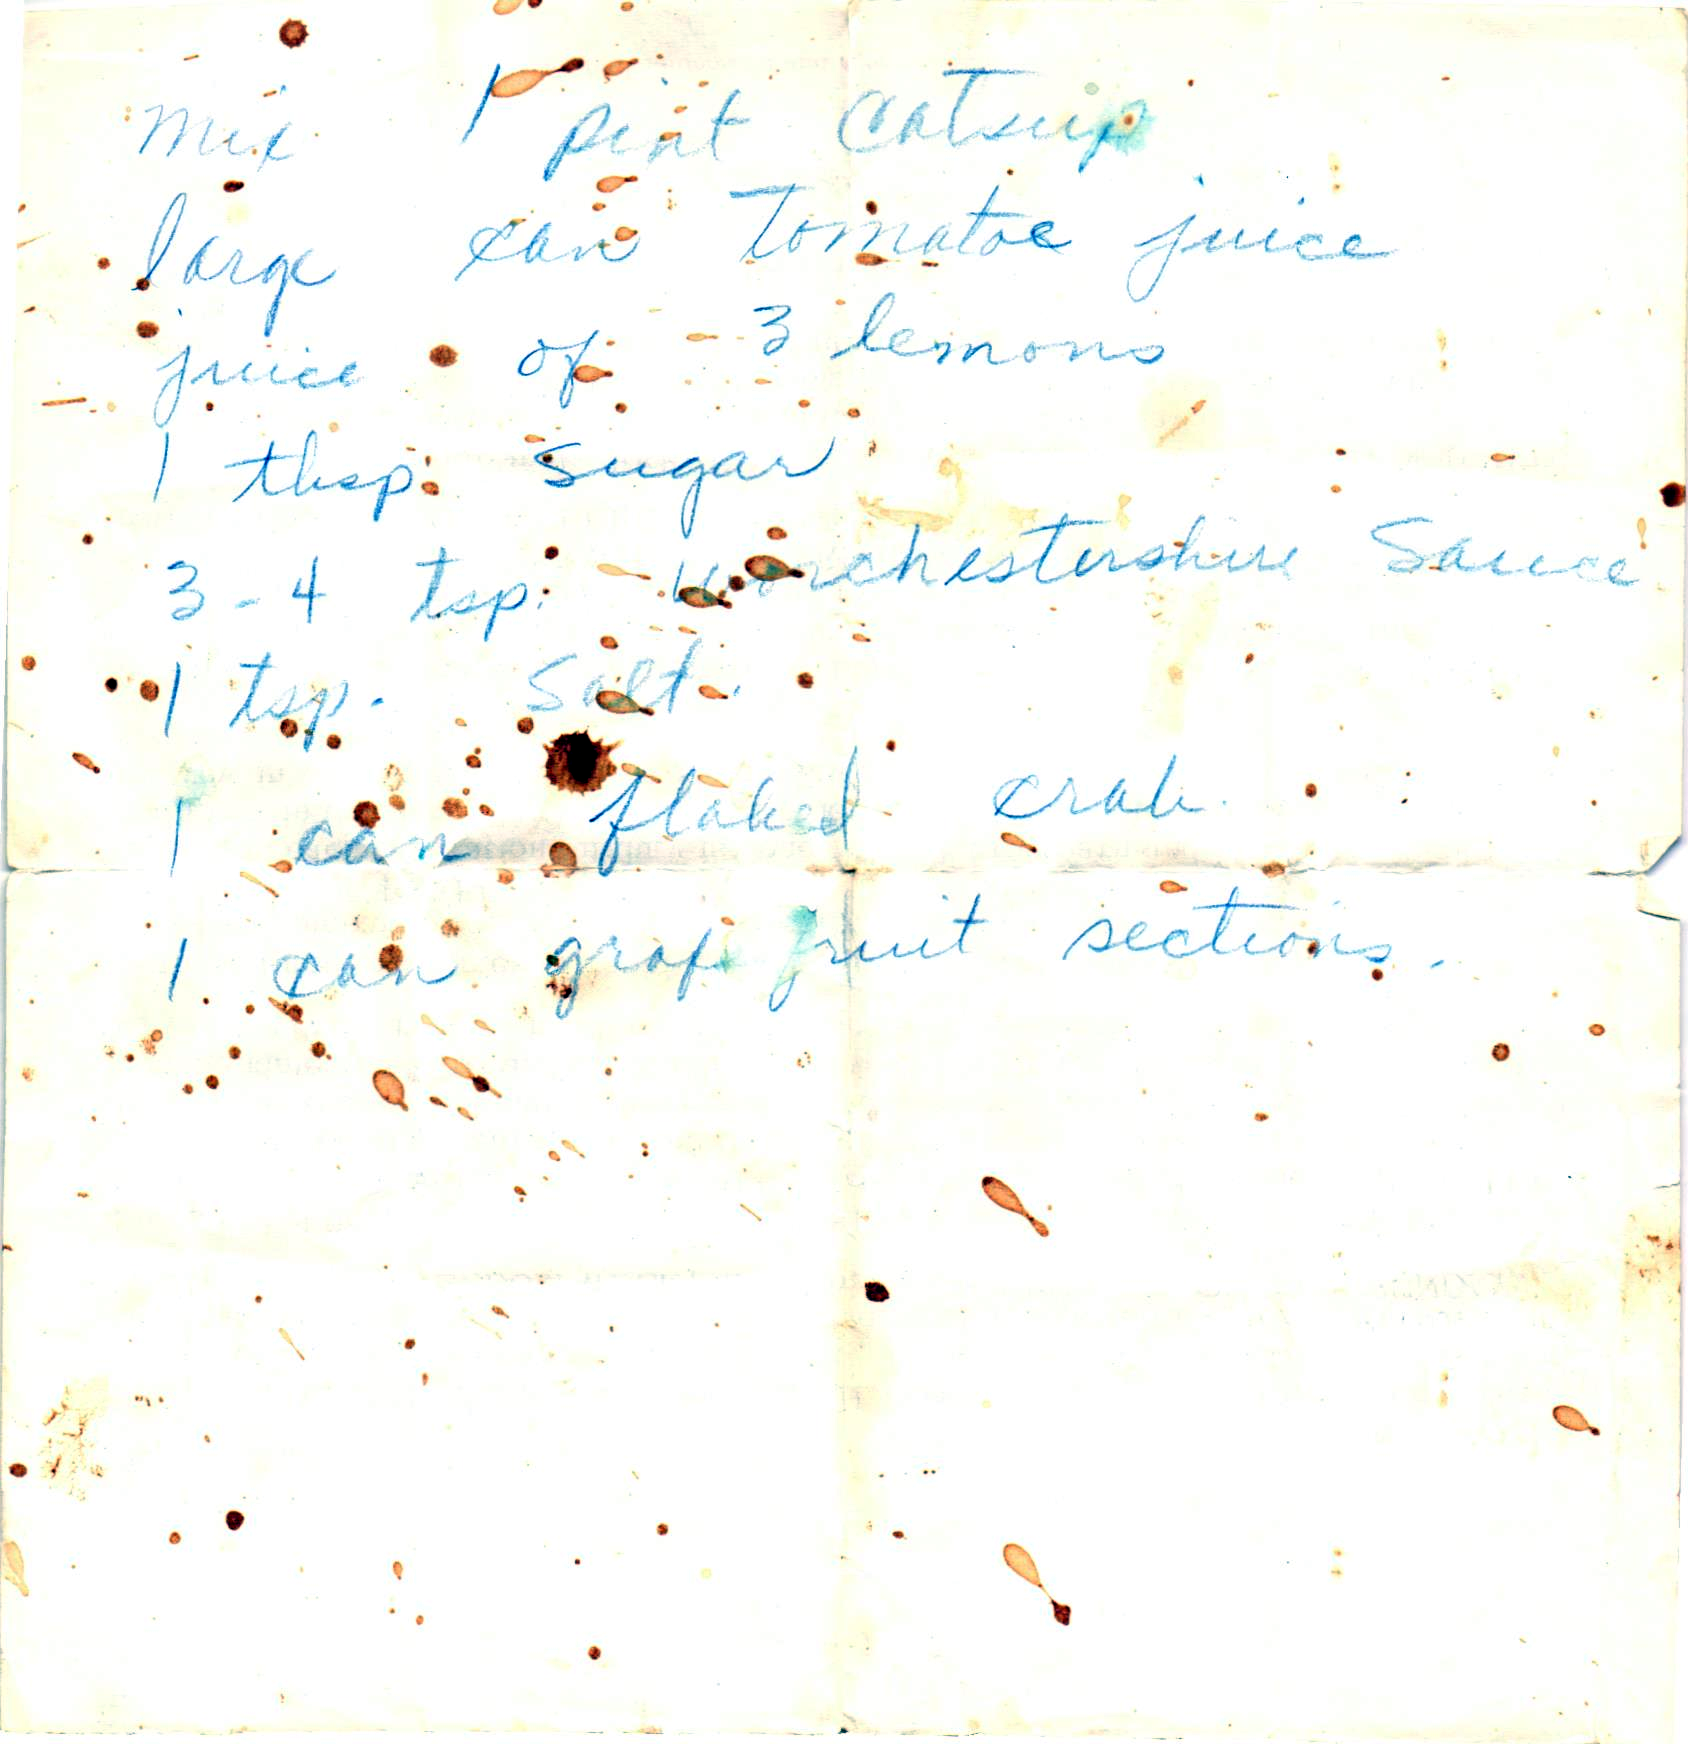 Mix 1 pint Catsup
large can Tomatoe juice
juice of 3 lemons
1 tbsp. sugar
3-4 tsp. Worchestershire Sauce
1 tsp. Salt.
1 can flaked crab.
1 can grapefruit sections.